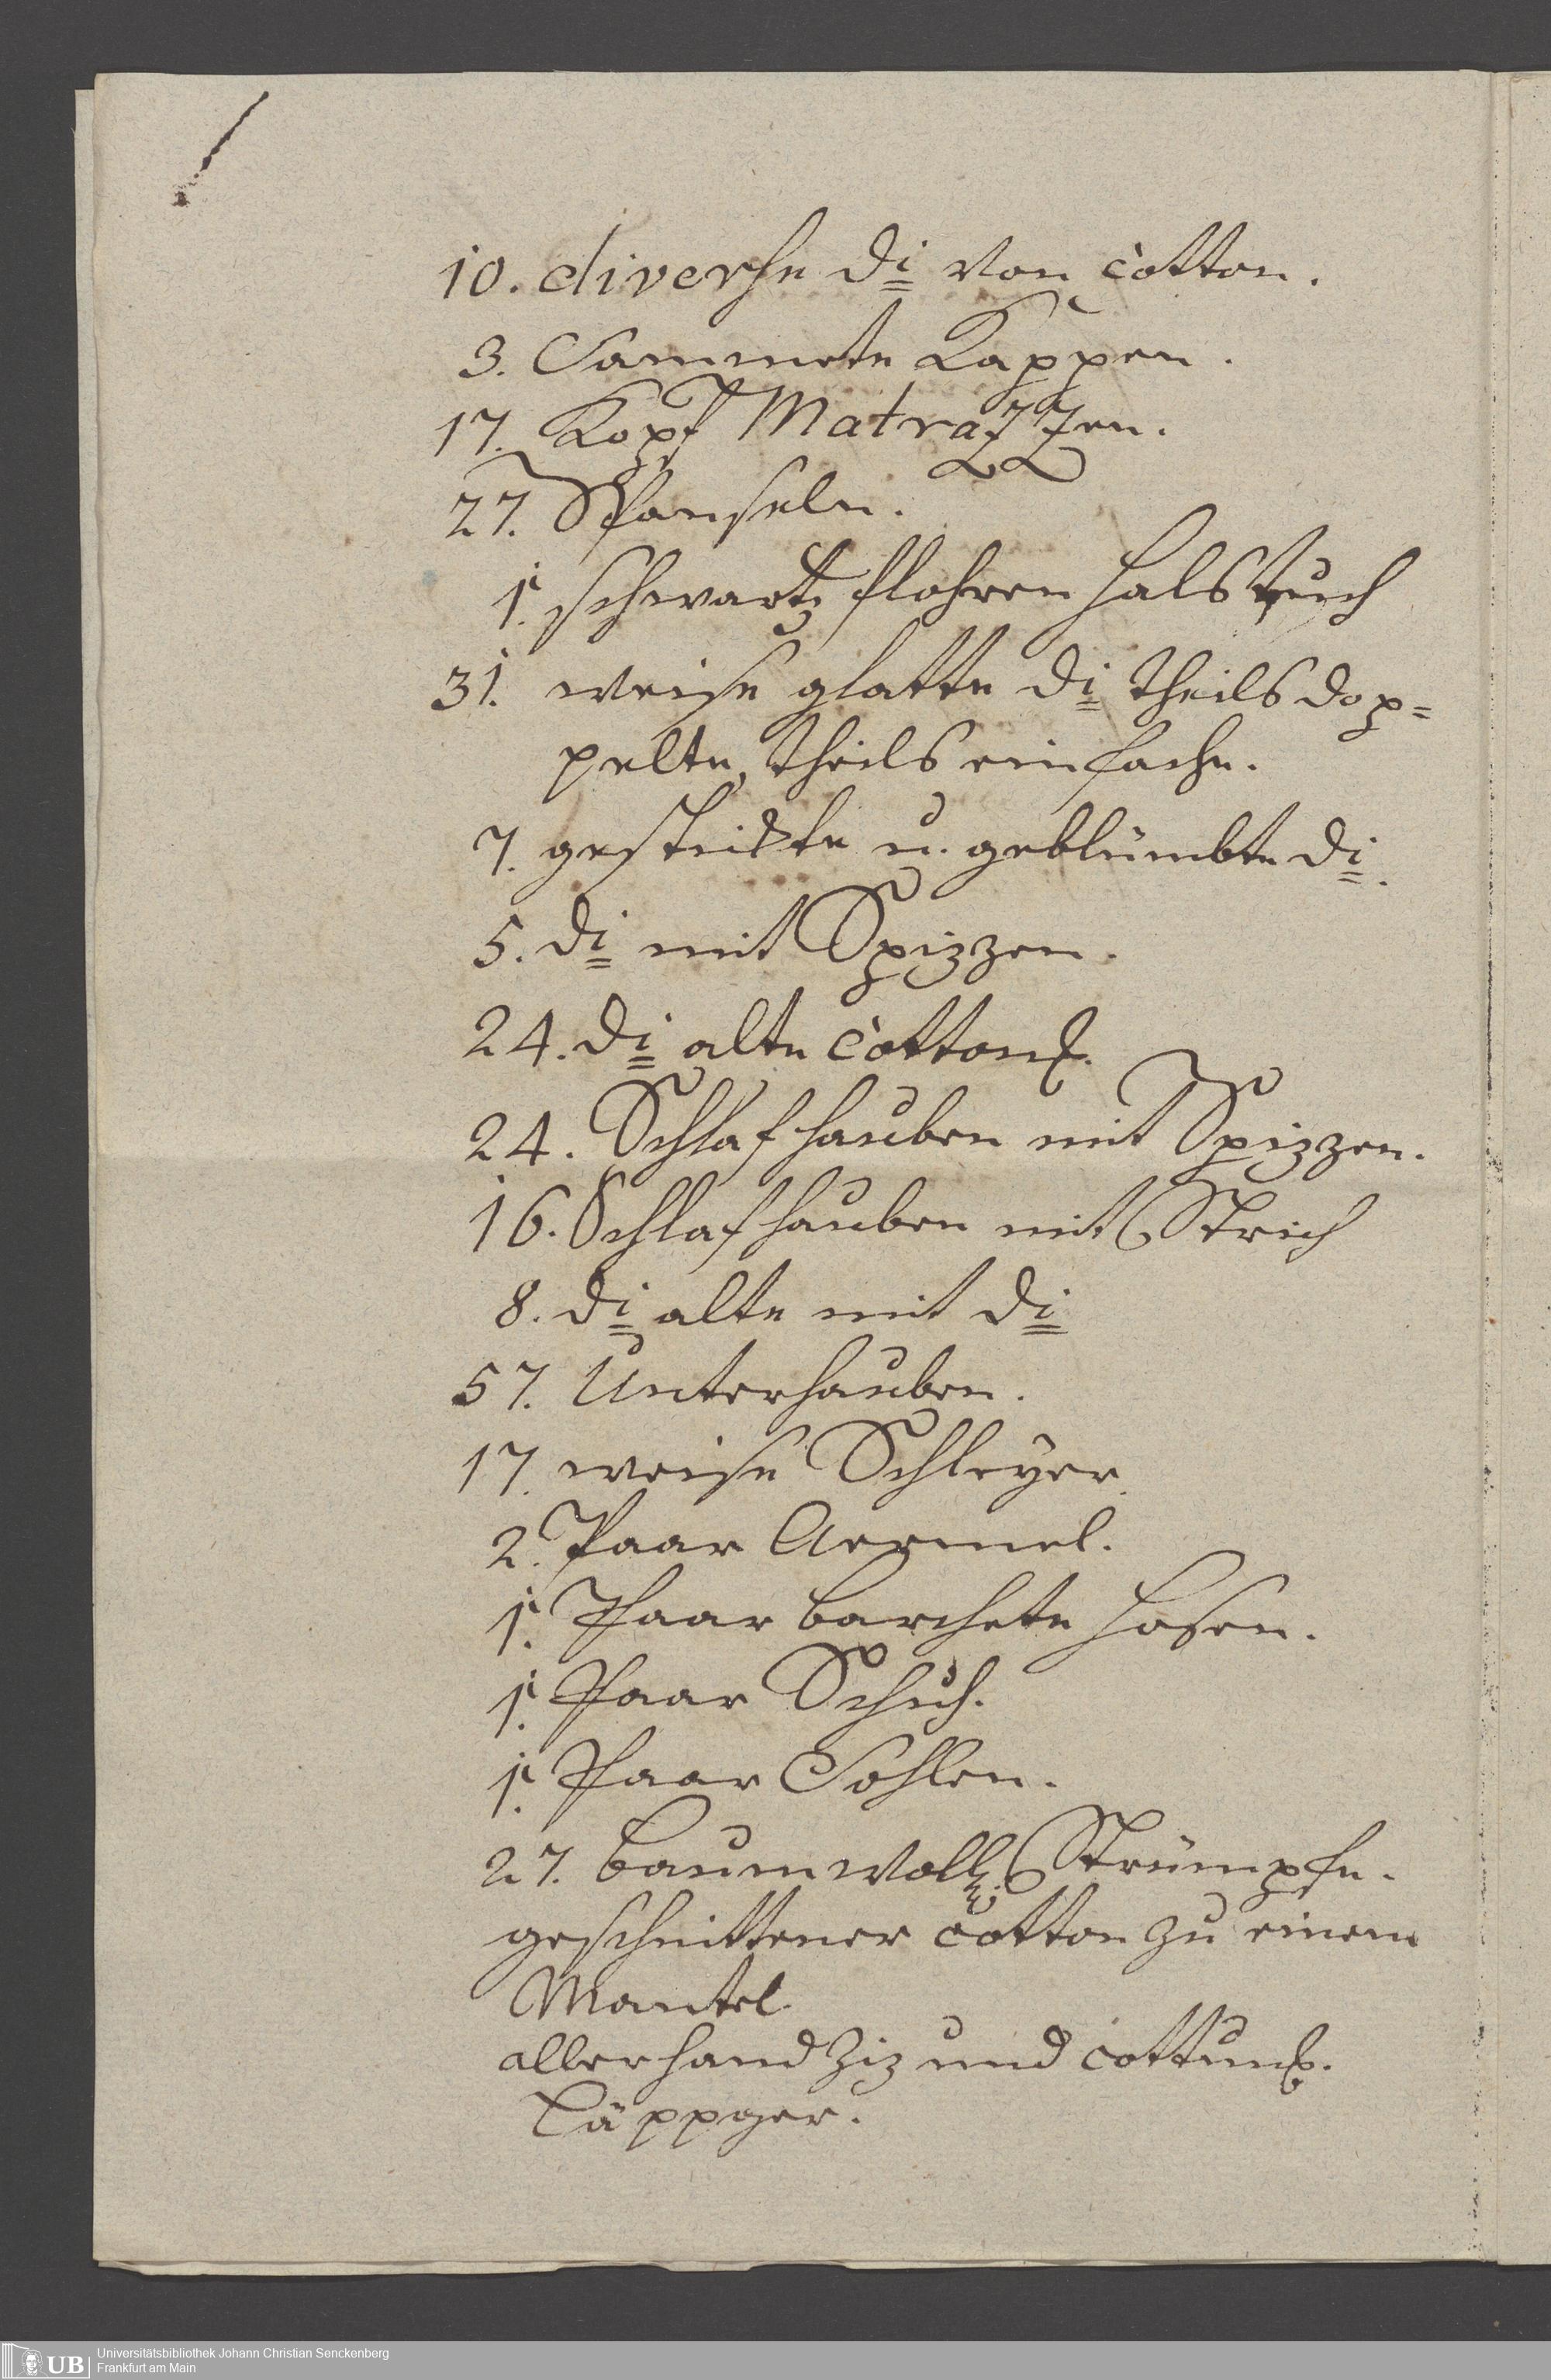 10. diverse di von cotton.
3. Sammete Kappen.
17. Kopf Matrazzen.
27.
1. schwartz flohren Halstuch
31. weise glatte di theils dop=
pelte, theils einfache.
7. gestrickte u. geblümbte di.
5. di mit Spizzen.
24. di alte cotton.
24. Schlafhauben mit Spizzen.
16. Schlafhauben mit Strich
8. di alte mit di
57. Unterhauben.
17. weise Schleyer.
2. Paar Aermel.
1. Paar barchete Hosen.
1. Paar Schuh.
1. Paar Sohlen.
27. baumwoll. Strümpfe.
geschnittener cotton zu einem
Mantel
allerhand Ziz und cottun.
Läppger.
UB Universitätsbibliothek Johann Christian Senckenberg
Frankfurt am Main